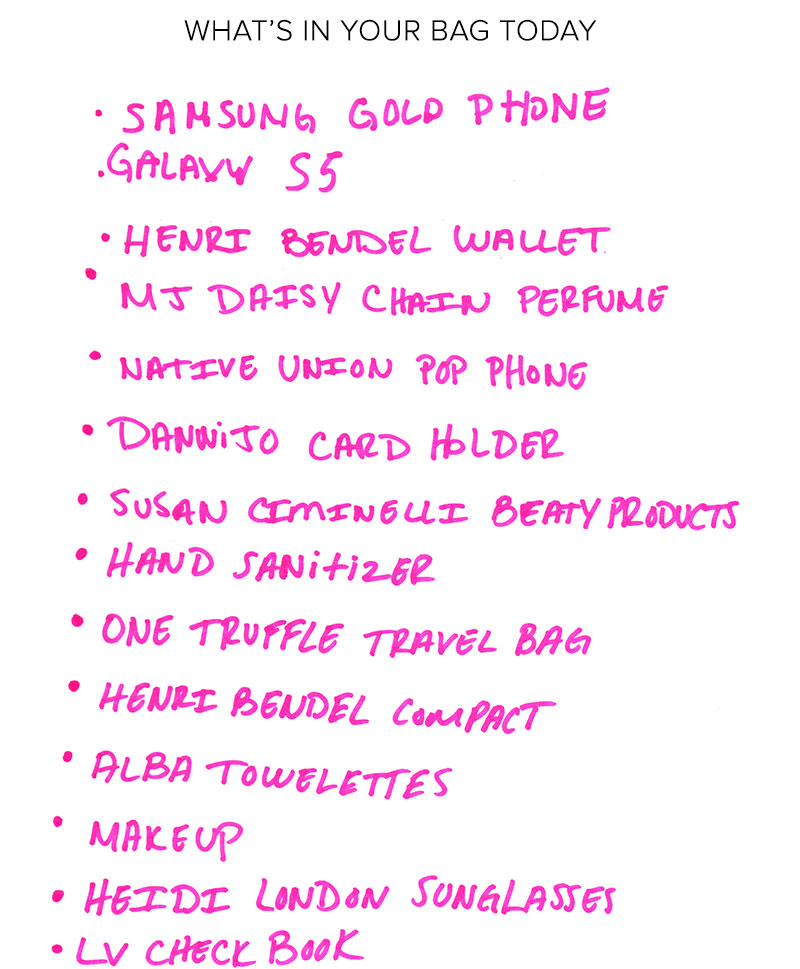 WHAT'S IN YOUR BAG TODAY
• SAMSUNG GOLD PHONE
. GALAXY S5
• HENRI BENDEL WALLET
• MJ DAISY CHAIN PERFUME
• NATIVE UNION POP PHONE
• DANNIJO CARD HOLDER
• SUSAN CIMINELLI BEATY PRODUCTS
• HAND SANITIZER
• ONE TRUFFLE TRAVEL BAG
• HENRI BENDEL COMPACT
• ALBA TOWELETTES
• MAKEUP
• HEIDI LONDON SUNGLASSES
• LV CHECK BOOK